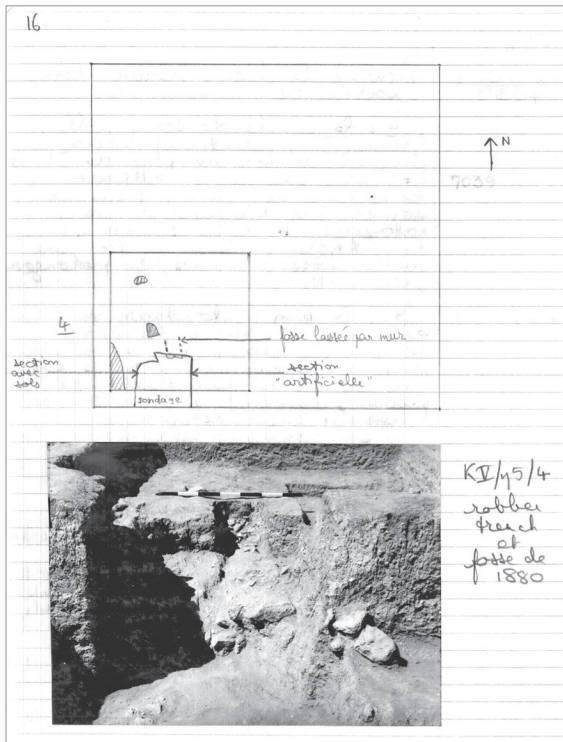 16
N
7039
4
fosse laissée par mur
section
avec
sols
section
"artificielle"
sondage
KV/y5/4
robber
trench
et
fosse de
1880